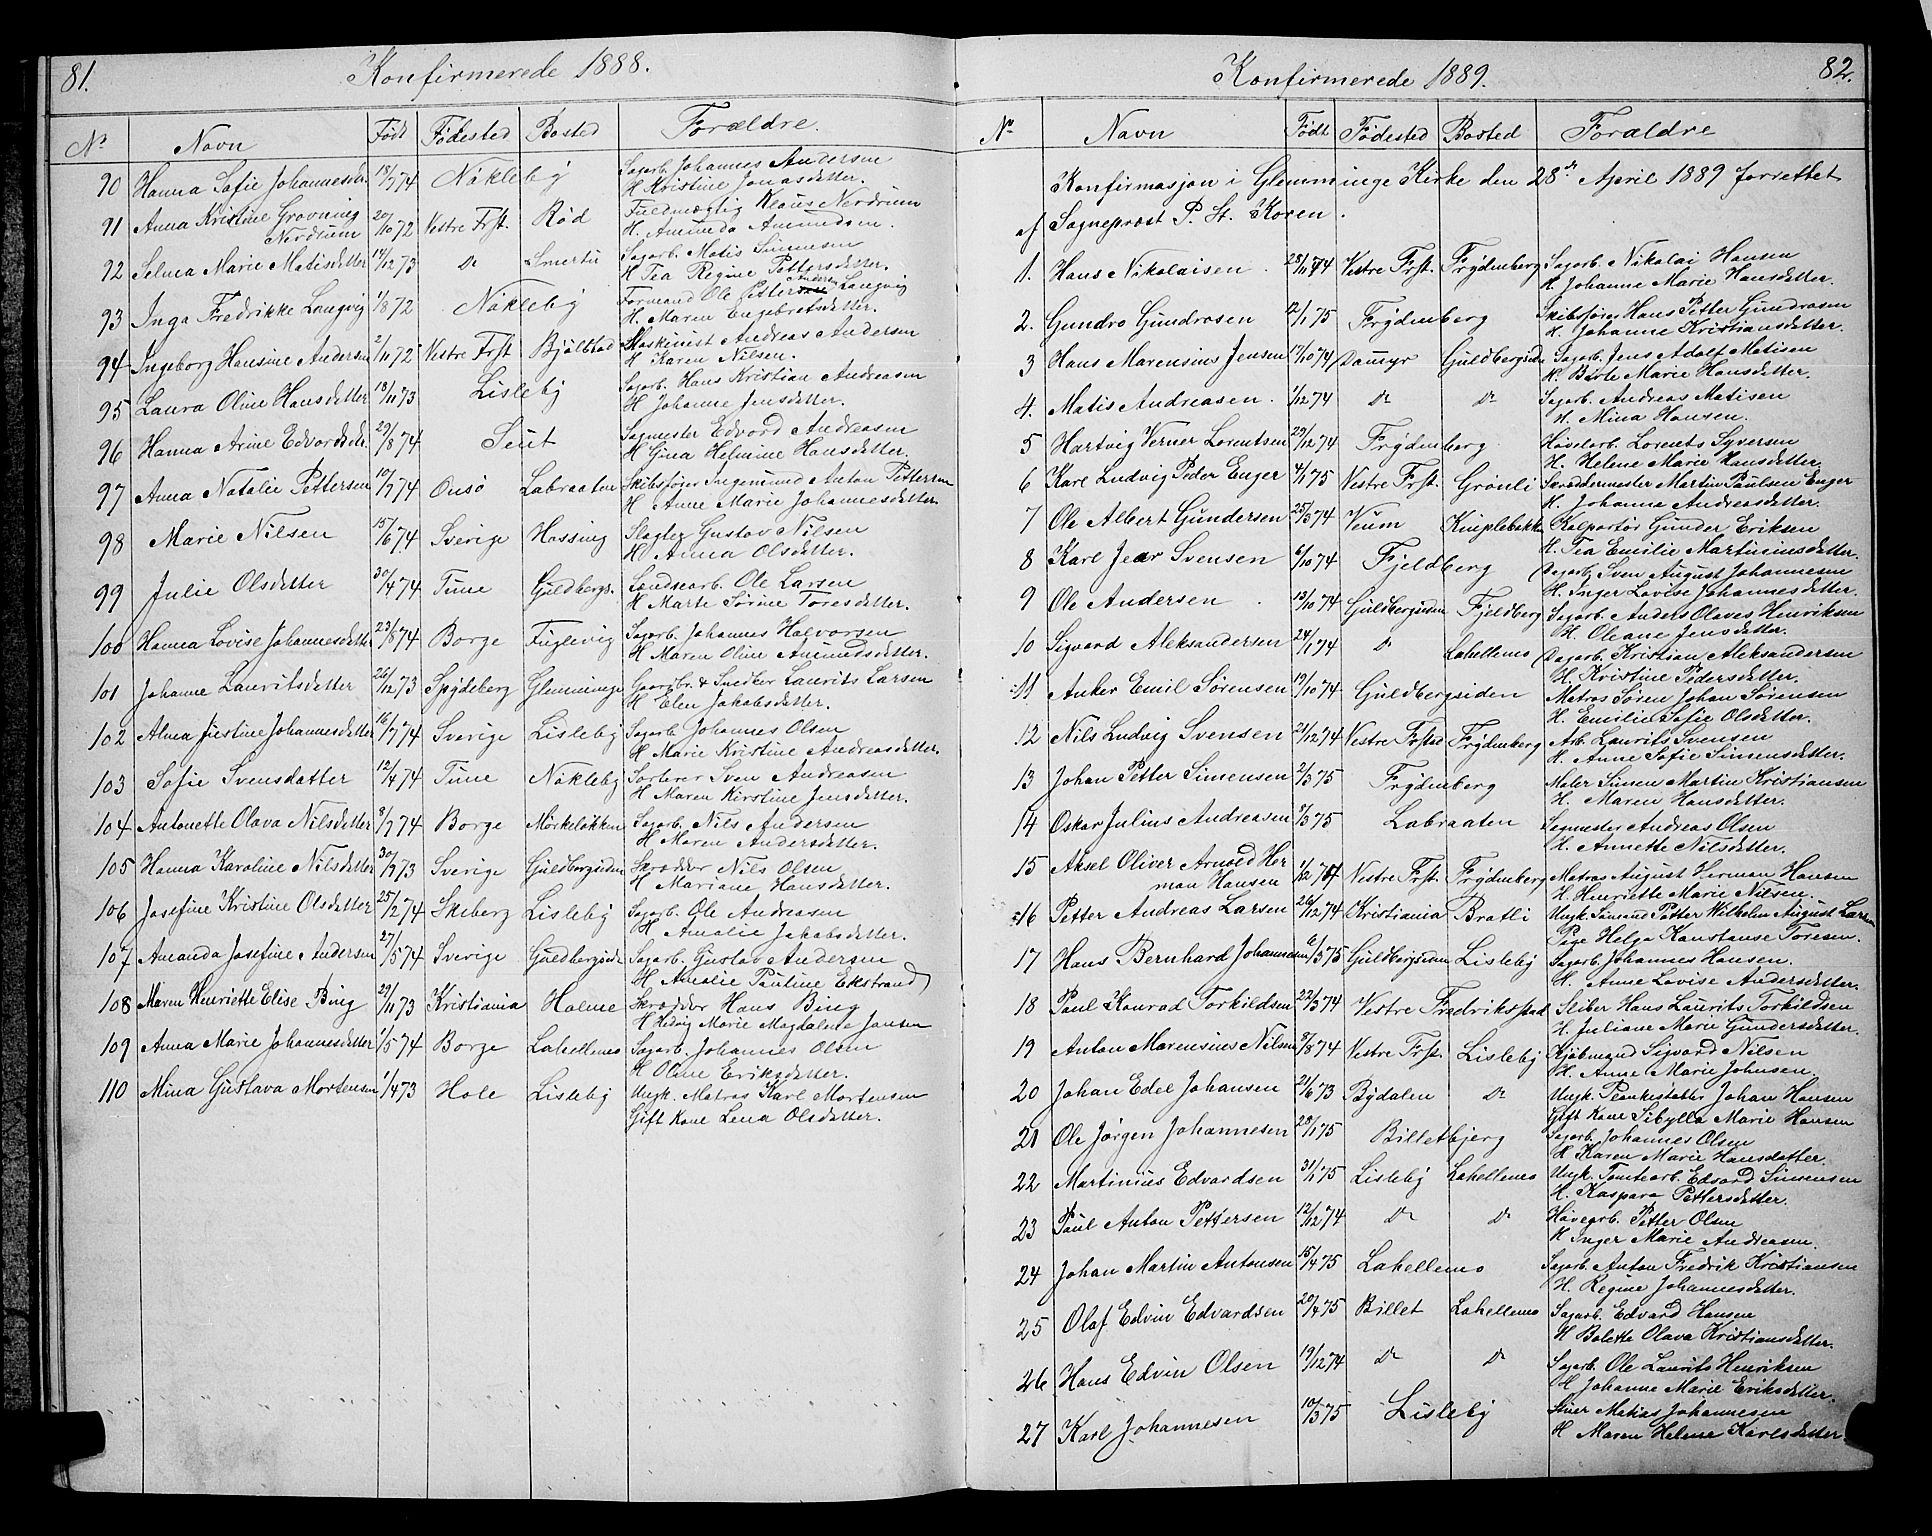 81.
Konfirmerede 1888.
No Navn Født Fødested Bosted Forældre.
90 Hanna Sofie Johannesdr. 18/7 74 Nökleby Sagarb. Johannes Andersen
H Kristine Jonasdatter.
91 Anna Kristine Grovning 20/10 72 Vestre Frst. Rød Fuldmægtig Klaus Nerdrum
Nerdrum H. Amunda Amundsen.
92 Selma Marie Matisdatter 14/12 73 do Smertu Sagarb. Matis Simensen
H Tea Regine Pettersdatter.
93 Inga Fredrikke Langvig 1/8 72 Nökleby Formand Ole Petter Andersen Langvig
H. Maren Engebretsdatter.
94 Ingeborg Hansine Andersen 2/11 72 Vestre Frst Bjölstad Maskinist Andreas Andersen
H Karen Nilsen.
95 Laura Oline Hansdatter 18/11 73 Lisleby Sagarb. Hans Kristian Andreasen
H Johanne Jensdatter.
96 Hanna Arine Edvardsdr. 29/8 74 Seut Sagmester Edvard Andreasen
H Gina Helmine Hansdatter.
97 Anna Natalie Pettersen 10/7 74 Onsö Labraaten Skibsfører Ingemund Anton Pettersen
H Anne Marie Johannesdatter.
98 Marie Nilsen 15/6 74 Sverige Hassing Slagter Gustav Nilsen
H Anna Olsdatter.
99 Julie Olsdatter 30/4 74 Tune Guldbergs. Landsearb. Ole Larsen
H Marte Sørine Toresdatter.
100 Hanna Lovise Johannesdatter 23/8 74 Borge Fuglevig Sagarb. Johannes Halvorsen
H Maren Oline Amundsdatter.
101 Johanne Lauritsdatter 26/12 73 Spydeberg Glemminge Gaardbr. & Snedker Laurits Larsen
H Elen Jakobsdatter.
102 Alma Justine Johannesdatter 16/7 74 Sverige Lisleby Sagarb Johannes Olsen
H Marie Kristine Andreasdatter.
103 Sofie Svensdatter 12/4 74 Tune Nökleby Sorterer Sven Andreasen
H Maren Kirstine Jensdatter.
104 Antonette Olava Nilsdatter 8/7 74 Borge Mørkeløkken Sagarb. Nils Andersen
H Maren Andersdatter.
105 Hanna Karoline Nilsdatter 30/9 73 Sverige Guldbergsiden Skrædder Nils Olsen
H Mariane Hansdatter.
106 Josefine Kristine Olsdatter 25/2 74 Skiberg Lisleby Sagarb. Ole Andreasen
H Amalie Jakobsdatter.
107 Amanda Josefine Andersen 27/5 74 Sverige Guldbergsid Sagarb. Gustav Andersen
H Amalie Pauline Ekstrand
108 Maren Henriette Elise Bing 29/11 73 Kristiania Holme Skrædder Hans Bing
H Hedvig Marie Magdalene Jansen
109 Anna Marie Johannesdatter 1/5 74 Borge Lahellemo Sagarb. Johannes Olsen
H Oline Eriksdatter.
110 Mina Gustava Mortensen 1/4 73 Hole Lisleby Ungk. Matros Karl Mortensen
Gift Kone Lena Olsdatter.
Konfirmerede 1889. 82.
No Navn Født Fødested Bosted Forældre
Konfirmasjon i Glemminge Kirke den 28de April 1889 forrettet
af Sogneprest P. St. Koren.
1. Hans Nikolaisen. 28/11 74 Vestre Frst. Frydenberg Sagarb. Nikolai Hansen
H. Johanne Marie Hansdatter.
2. Gundro Gundrosen 12/1 75 Frydenberg Skibsfører Hans Petter Gundrosen
H. Johanne Kristiansdatter.
3 Hans Marensius Jensen 17/10 74 Damyr Guldbergsid Sagarb. Jens Adolf Matisen
H. Birte Marie Hansdatter.
4. Matis Andreasen. 1/12 74 do do Sagarb. Andreas Matisen
H. Mina Hansen.
5 Hartvig Verner Lorentsen 23/12 74 Frydenberg Høvelarb. Lorents Syversen
H. Helene Marie Hansdatter.
6 Karl Ludvig Peder Enger 4/1 75 Vestre Frst. Grönli Skræddermester Martin Paulsen Enger
H. Johanna Andreasdatter.
7 Ole Albert Gundersen 25/3 74 Veum Kniplebakke Kolportør Gunder Eriksen
H. Tea Emilie Martinusdatter.
8 Karl Jear Svensen 6/10 74 Fjeldberg Dagarb Sven August Johannesen
H. Inger Lovise Johannesdatter.
9 Ole Andersen. 13/10 74 Guldbergsiden Fjeldberg Sagarb. Anders Olaves Henriksen
H. Oleane Jensdatter.
10 Sigvard Aleksandersen 24/1 74 do Lahellemo Dagarb. Kristian Aleksandersen
H. Kristine Pedersdatter.
11 Anker Emil Sørensen 19/10 74 Guldbergsiden Matros Søren Johan Sørensen
H. Emilie Sofie Olsdatter.
12 Nils Ludvig Svensen 21/12 74 Vestre Frstad Frydenberg Arb. Laurits Svensen
H. Anne Sofie Simensdatter.
13 Johan Petter Simensen 2/3 75 Frydenberg Maler Simen Martin Kristiansen
H. Maren Hansdatter.
14 Oskar Julius Andreasen 8/3 75 Labraaten Sagmester Andreas Olsen
H. Annette Nilsdatter.
15 Aksel Oliver Arnold Her 1/12 74 Vestre Frst. Frydenberg Matros August Herman Hansen
man Hansen H. Henriette Marie Nilsen.
16 Petter Andreas Larsen 26/12 74 Kristiania Bratli Ungk. Sømand Petter Wilhelm August Larsen
Pige Helga Konstanse Toresen.
17 Hans Bernhard Johannesen 6/3 75 Guldbergsiden Lisleby Sagarb. Johannes Hansen.
H. Anne Lovise Andersdatter.
18 Paul Konrad Torkildsen 22/3 74 Vestre Fredrikstad Sliber Hans Laurits Torkildsen
H. Juliane Marie Gundersdatter.
19 Anton Marensius Nilsen 9/8 74 Vestre Frst. Lisleby Kjøbmand Sigvard Nilsen
H. Anne Marie Johnsen.
20 Johan Edel Johansen 21/6 73 Bydalen do Ungk. Plankestabler Johan Hansen
Gift Kone Sibylla Marie Hansen
21 Ole Jørgen Johannesen 28/1 75 Billetbjerg Sagarb. Johannes Olsen
H Karen Marie Hansdatter.
22 Martinius Edvardsen 31/1 75 Lisleby Lahellemo Ungk. Tomtearb. Edvard Simensen
H. Kaspara Pettersdatter.
23 Paul Anton Pettersen 12/12 74 do do Høvlearb. Petter Olsen
H Inger Marie Andreasen.
24 Johan Martin Antonsen 15/4 75 Lahellemo Sagarb. Anton Fredrik Kristiansen
H. Regine Johannesdatter.
25 Olaf Edvin Edvardsen 20/4 75 Billet Lahellemo Sagarb. Edvard Hansen
H Bolette Olava Kristiansdatter.
26 Hans Edvin Olsen 19/12 74 do do Sagarb. Ole Laurits Henriksen
H Johanne Marie Eriksdatter.
27 Karl Johannesen 10/3 75 Lisleby Stuer Matias Johannesen
H Maren Helene Karlsdatter.